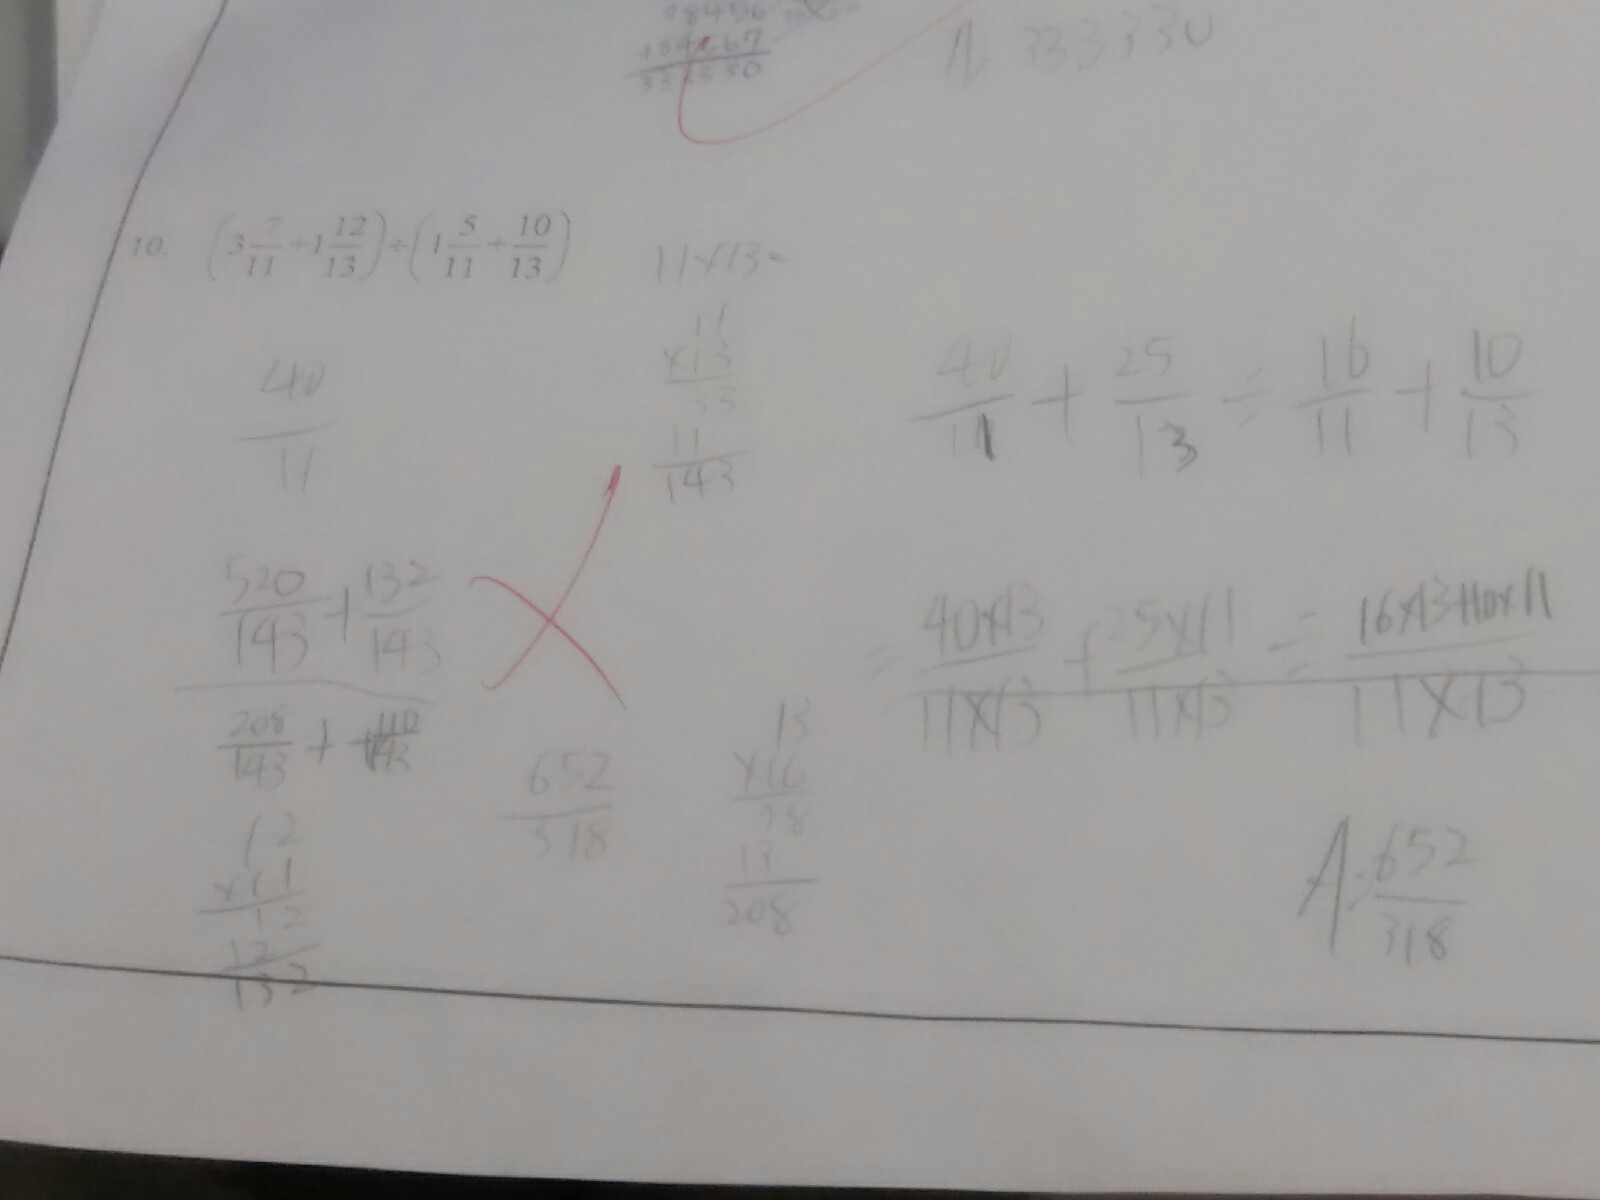 +04567
333330
A 333330
10. (3 7/11 + 1 12/13) ÷ (1 5/11 + 10/13)
11×13=
40/11
11
×13
33
11
143
40/11 + 25/13 ÷ 16/11 + 10/13
520/143 + 132/143
208/143 + 110/143
= 40×13/11×13 + 25×11/11×13 ÷ 16×13+10×11/11×13
652/318
13
×16
78
13
208
12
×11
12
12
132
A: 652/318